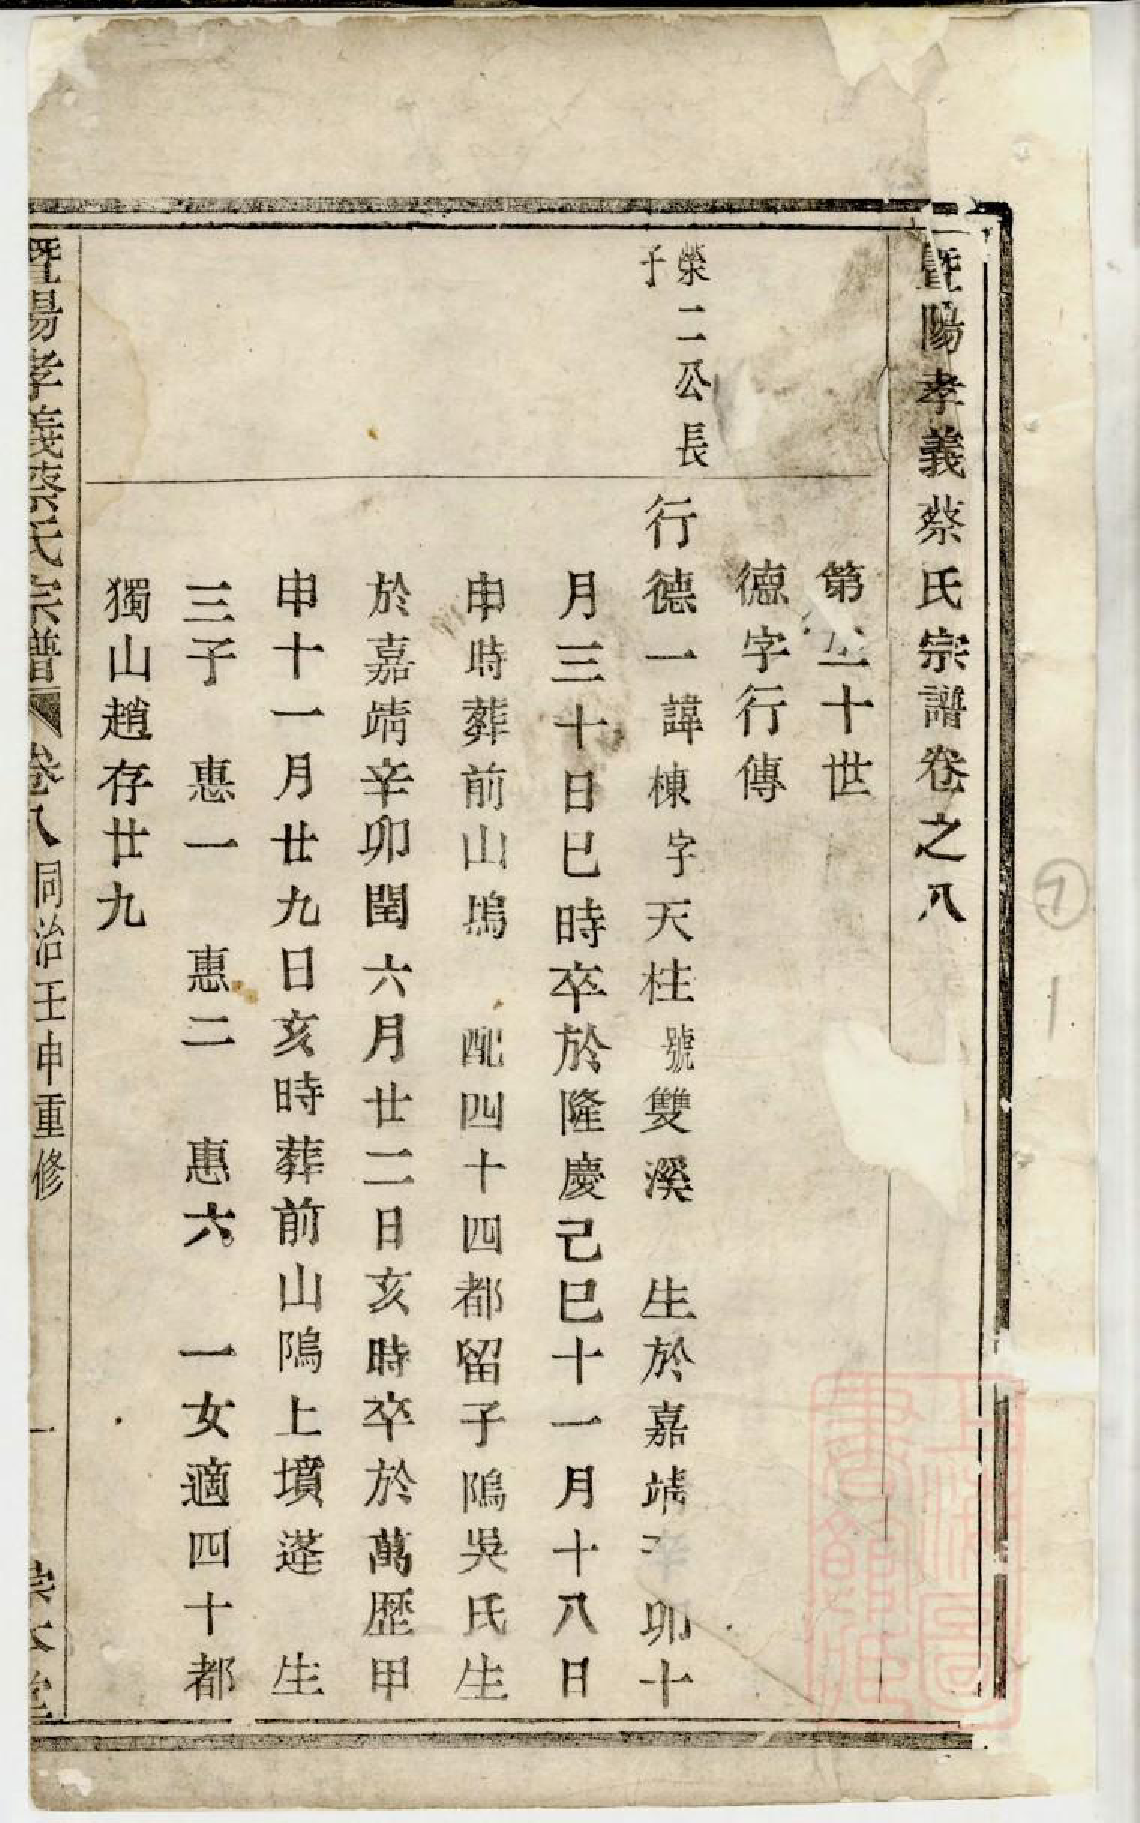 暨陽孝義蔡氏宗譜卷之八
第二十世
德字行傳
榮二公長
子
行德一諱棟字天柱號雙溪　生於嘉靖辛卯十
月三十日巳時卒於隆慶己巳十一月十八日
申時葬前山塢　配四十四都留子隝吳氏生
於嘉靖辛卯閏六月廿二日亥時卒於萬歷甲
申十一月廿九日亥時葬前山隝上墳蓬　生
三子　惠一　惠二　惠六　一女適四十都
獨山趙存廿九
暨陽孝義蔡氏宗譜　卷八　同治壬申重修　一　崇本堂